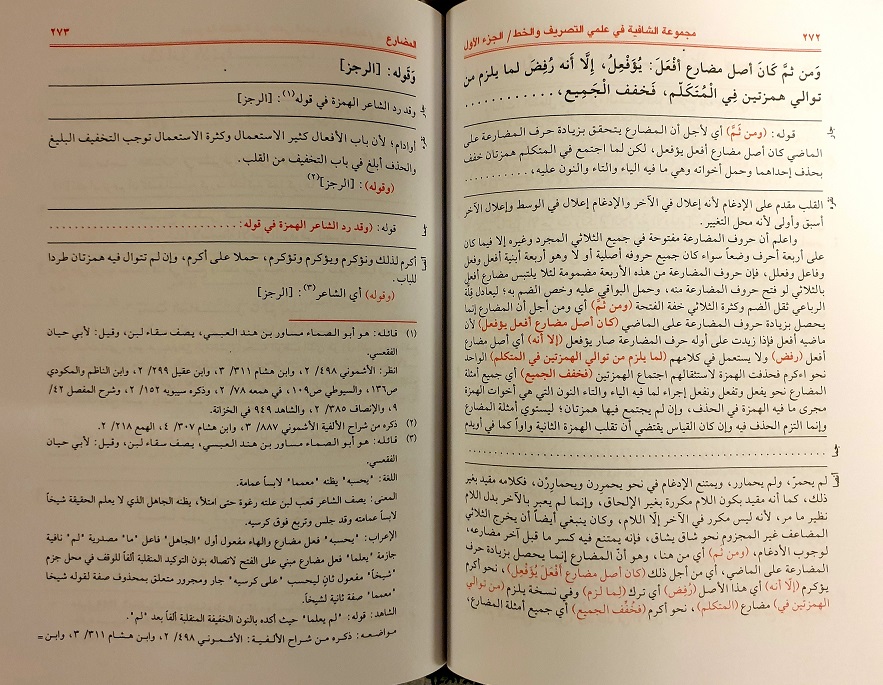 ٢٧٢ مجموعة الشافية في علمي التصريف والخط/ الجزء الأول
وَمن ثمَّ كَانَ أصل مضارع أفْعَلَ: يُؤَفْعِلُ، إلَّا أَنه رُفِضَ لما يلزم من
توالي همزتين فِي الْمُتَكَلّم، فَخفف الْجَمِيع، ............
جار
قوله: (ومن ثَمَّ) أي لأجل أن المضارع يتحقق بزيادة حرف المضارعة على
الماضي كان أصل مضارع أفعل يؤفعل، لكن لما اجتمع في المتكلم همزتان خفف
بحذف إحداهما وحمل أخواته وهي ما فيه الياء والتاء والنون عليه، ............
القلب مقدم على الإدغام لأنه إعلال في الآخر والإدغام إعلال في الوسط وإعلال الآخر
أسبق وأولى لأنه محل التغيير.
واعلم أن حروف المضارعة مفتوحة في جميع الثلاثي المجرد وغيره إلا فيما كان
على أربعة أحرف وضعاً سواء كان جميع حروفه أصلية أو لا وهو أربعة أبنية أفعل وفعل
وفاعل وفعلل، فإن حروف المضارعة من هذه الأربعة مضمومة لئلا يلتبس مضارع أفعل
بالثلاثي لو فتح حروف المضارعة منه، وحمل البواقي عليه وخص الضم به؛ ليعادل قِلَّةُ
الرباعي ثقل الضم وكثرة الثلاثي خفة الفتحة (ومن ثَمَّ) أي ومن أجل أن المضارع إنما
يحصل بزيادة حروف المضارعة على الماضي (كان أصل مضارع أفعل يؤفعل) لأن
ماضيه أفعل فإذا زيدت على أوله حرف المضارعة صار يؤفعل (إلا أنه) أي أصل مضارع
أفعل (رفض) ولا يستعمل في كلامهم (لما يلزم من توالي الهمزتين في المتكلم) الواحد
نحو اءكرم فحذفت الهمزة لاستثقالهم اجتماع الهمزتين (فخفف الجميع) أي جميع أمثلة
المضارع نحو يفعل وتفعل ونفعل إجراء لما فيه الياء والتاء النون التي هي أخوات الهمزة
مجرى ما فيه الهمزة في الحذف، وإن لم يجتمع فيها همزتان؛ ليستوي أمثلة المضارع
وإنما التزم الحذف فيه وإن كان القياس يقتضي أن تقلب الهمزة الثانية واواً كما في أويدم
................................
لم يحمرّ، ولم يحمارر، ويمتنع الإدغام في نحو يحمرِرن ويحمارِرْن، فكلامه مقيد بغير
ذلك، كما أنه مقيد بكون اللام مكررة بغير الإلحاق، وإنما لم يعبر بالآخر بدل اللام
نظير ما مر، لأنه ليس مكرر في الآخر إلَّا اللام، وكان ينبغي أيضاً أن يخرج الثلاثي
المضاعف غير المجزوم نحو شاق يشاق، فإنه يمتنع فيه كسر ما قبل آخر مضارعه،
لوجوب الأدغام، (ومن ثم) أي من هنا، وهو أنّ المضارع إنما يحصل بزيادة حرف
المضارعة على الماضي، أي من أجل ذلك (كان أصل مضارع أفْعَلَ يُؤَفْعِلُ)، نحو أكرم
يؤكرم (إلَّا أنه) أي هذا الأصل (رُفِضَ) أي ترك (لما لزم) وفي نسخة يلزم (من توالي
الهمزتين في) مضارع (المتكلم)، نحو أكرم (فخُفِّف الجميع) أي جميع أمثلة المضارع،
المضارع ٢٧٣
وَقَوله: [الرجز]
جار
وقد رد الشاعر الهمزة في قوله(١): [الرجز]
أوادام؛ لأن باب الأفعال كثير الاستعمال وكثرة الاستعمال توجب التخفيف البليغ
والحذف أبلغ في باب التخفيف من القلب.
(وقوله): [الرجز](٢)
قوله: (وقد رد الشاعر الهمزة في قوله: ................
أكرم لذلك ونؤكرم ويؤكرم وتؤكرم، حملا على أكرم، وإن لم تتوال فيه همزتان طردا
للباب.
(وقوله) أي الشاعر(٣): [الرجز]
(١) قائله: هو أبو الصماء مساور بن هند العبسي، يصف سقاء لبن، وقيل: لأبي حيان
الفقعسي.
انظر: الأشموني ٤٩٨/ ٢، وابن هشام ٣١١/ ٣، وابن عقيل ٢٩٩/ ٢، وابن الناظم والمكودي
ص١٣٦، والسيوطي ص١٠٩، في همعه ٧٨/ ٢، وذكره سيبويه ١٥٢/ ٢، وشرح المفصل ٤٢/
٩، والإنصاف ٣٨٥/ ٢، والشاهد ٩٤٩ في الخزانة.
(٢) ذكره من شراح الألفية الأشموني ٨٨٧/ ٣، وابن هشام ٣٠٧/ ٤، الهمع ٢١٨/ ٢.
(٣) قائله: هو أبو الصماء مساور بن هند العبسي، يصف سقاء لبن، وقيل: لأبي حيان
الفقعسي.
اللغة: "يحسبه" يظنه "معمما" لابساً عمامة.
المعنى: يصف الشاعر قعب لبن علته رغوة حتى امتلأ، يظنه الجاهل الذي لا يعلم الحقيقة شيخاً
لابساً عمامته وقد جلس وتربع فوق كرسيه.
الإعراب: "يحسبه" فعل مضارع والهاء مفعول أول "الجاهل" فاعل "ما" مصدرية "لم" نافية
جازمة "يعلما" فعل مضارع مبني على الفتح لاتصاله بنون التوكيد المنقلبة ألفاً للوقف في محل جزم
"شيخاً" مفعول ثانٍ ليحسب "على كرسيه" جار ومجرور متعلق بمحذوف صفة لقوله شيخا
"معمما" صفة ثانية لشيخاً.
الشاهد: قوله: "لم يعلما" حيث أكده بالنون الخفيفة المنقلبة ألفاً بعد "لم".
مواضعه: ذكره من شراح الألفية: الأشموني ٤٩٨/ ٢، وابن هشام ٣١١/ ٣، وابن =